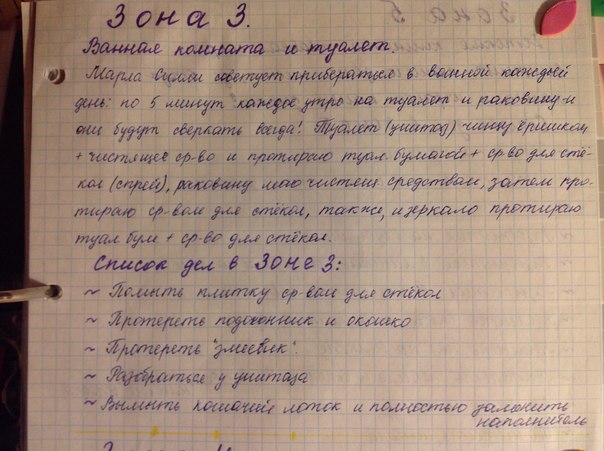 Зона 3.
Ванная комната и туалет.
Марла Силли советует прибераться в ванной каждый
день: по 5 минут каждое утро на туалет и раковину - и
они будут сверкать всегда! Туалет (унитаз) чищу ёршиком
+ чистящее ср-во и протираю туал. бумагой + ср-во для стё-
кол (спрей), раковину мою чистящ. средством, затем про-
тираю ср-вом для стёкол, также, и зеркало протираю
туал бум + ср-во для стёкол.
Список дел в Зоне 3:
~ Помыть плитку ср-вом для стёкол
~ Протереть подоконник и окошко
~ Протереть "змеевик".
~ Разобраться у унитаза
~ Вымыть кошачий лоток и полностью заменить
наполнитель
Зона 5